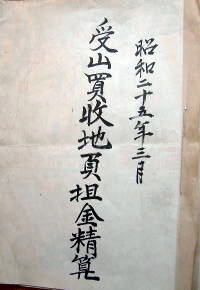 昭和二十五年三月
受山買收地負担金精算